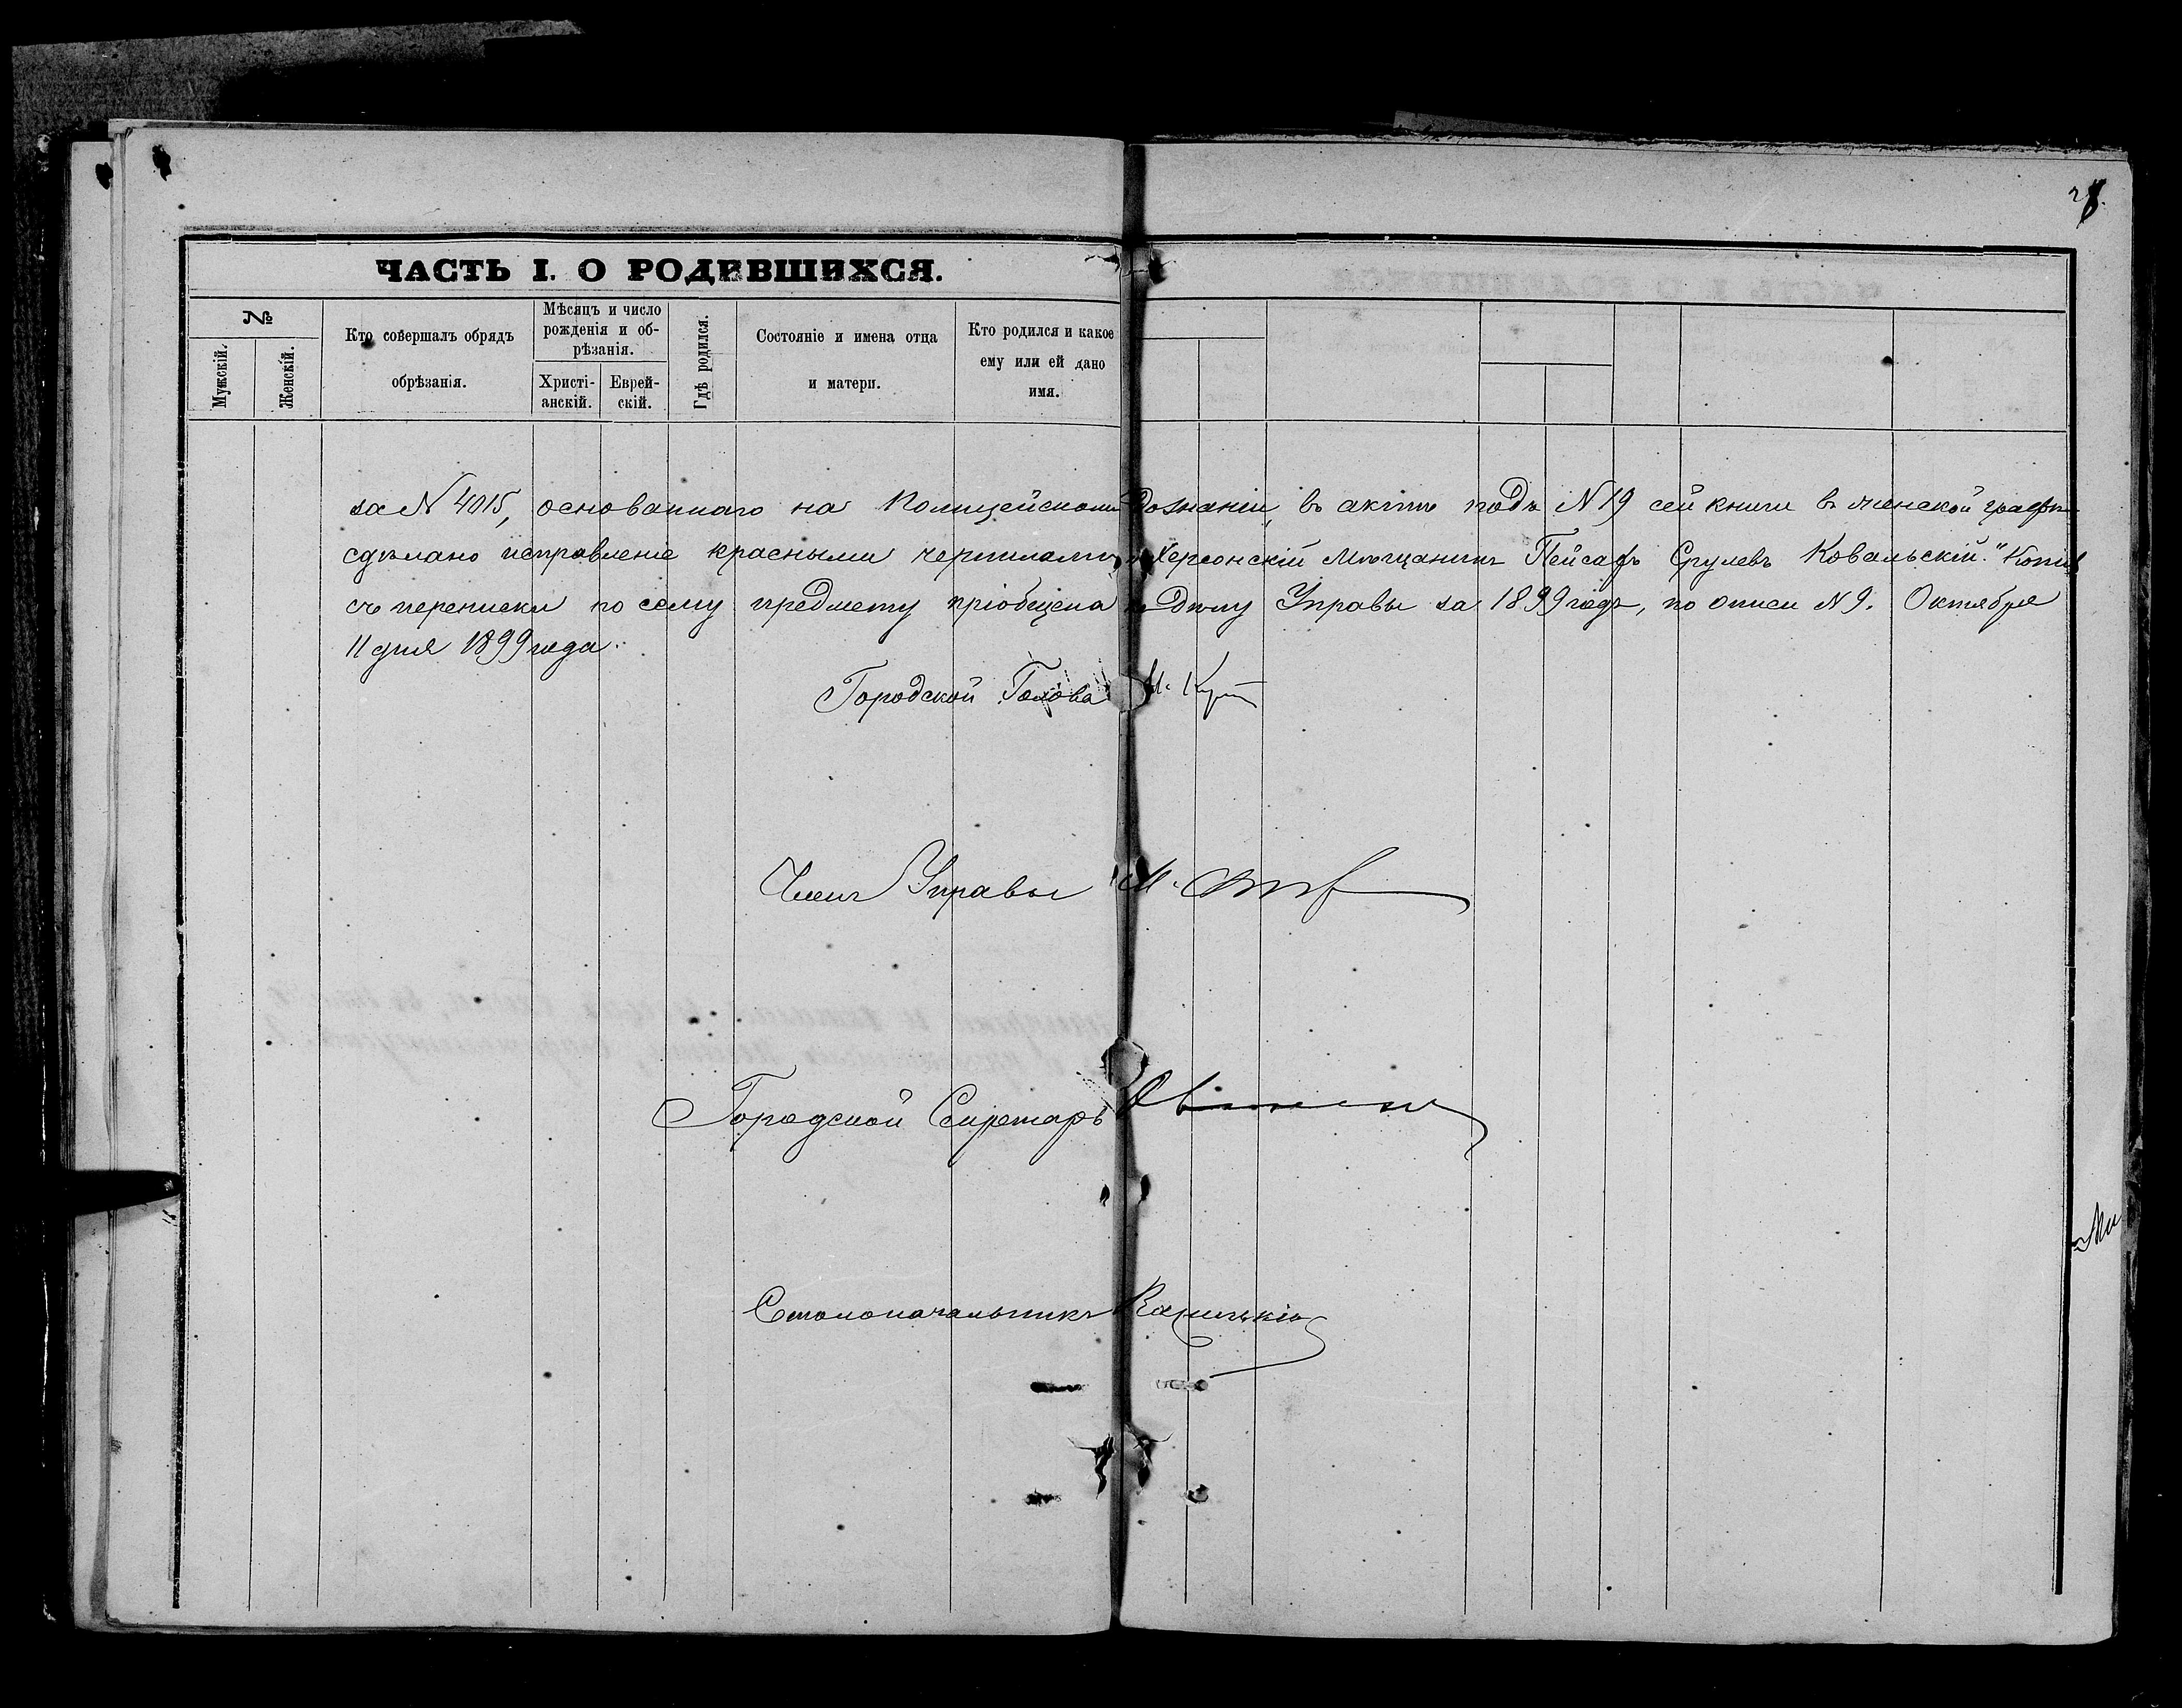 28.
ЧАСТЬ I. О РОДИВШИХСЯ.
№
Мужскій.
Женскій.
Кто совершалъ обрядъ
обрѣзанія.
Мѣсяцъ и число
рожденія и об-
рѣзанія.
Христі-
анскій.
Еврей-
скій.
Гдѣ родился.
Состояніе и имена отца
и матери.
Кто родился и какое
ему или ей дано
имя.
за N 4015, основаннаго на Полицейскомъ Дознаніи, въ актѣ подъ N 19 сей книги въ женской графѣ
сдѣлано исправленіе красными чернилами Херсонскій Мѣщанинъ Пейсахъ Срулевъ Ковальскій." Копія
съ переписки по сему предмету пріобщена къ Дѣлу Управы за 1899 годъ, по описи N 9. Октября
11 дня 1899 года.
Городской Голова
Членъ Управы М.
Городской Секретарь
Столоначальникъ